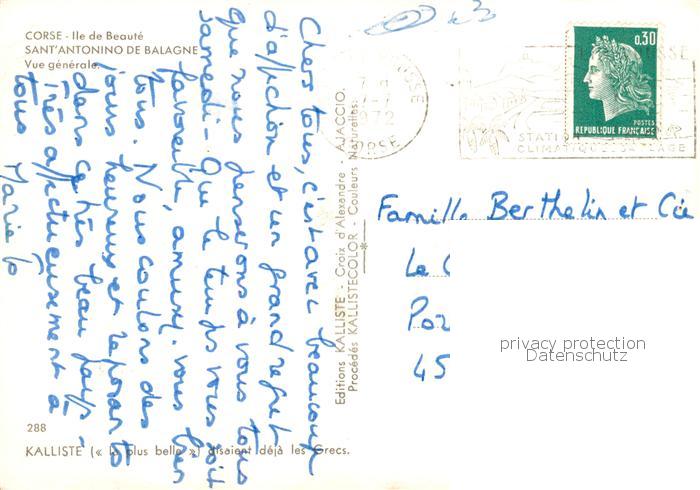 CORSE - Ile de Beauté
SANT'ANTONINO DE BALAGNE
Vue générale.
Chers tous, c'est avec beaucoup
d'affection et un grand regret
que nous penserons à vous tous
samedi - Que le temps vous soit
favorable, amusez-vous bien
tous. Nous coulons des
jours heureux et reposants
dans ce très beau pays -
Très affectueusement à
tous
Marie
288
KALLISTE (« la plus belle ») disaient déjà les Grecs.
Editions KALLISTE - Croix d'Alexandre - AJACCIO.
Procédés KALLISTECOLOR - Couleurs Naturelles.
1972
CORSE
STATION
CLIMATIQUE
0,30
POSTES
REPUBLIQUE FRANÇAISE
Famille Berthelin et Cie
Le
Poz
45
privacy protection
Datenschutz